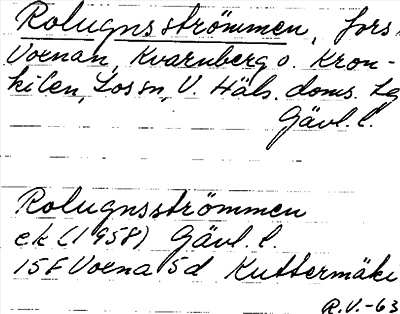 Rolugnsströmmen, fors,
Voxnan, Kvarnberg o. Kron-
kilen, Los sn, V. Häls. doms. Lg
Gävl. l.
Rolugnsströmmen
ek (1958) Gävl. l.
15F Voxna 5d Kuttermäki
R.V.-63